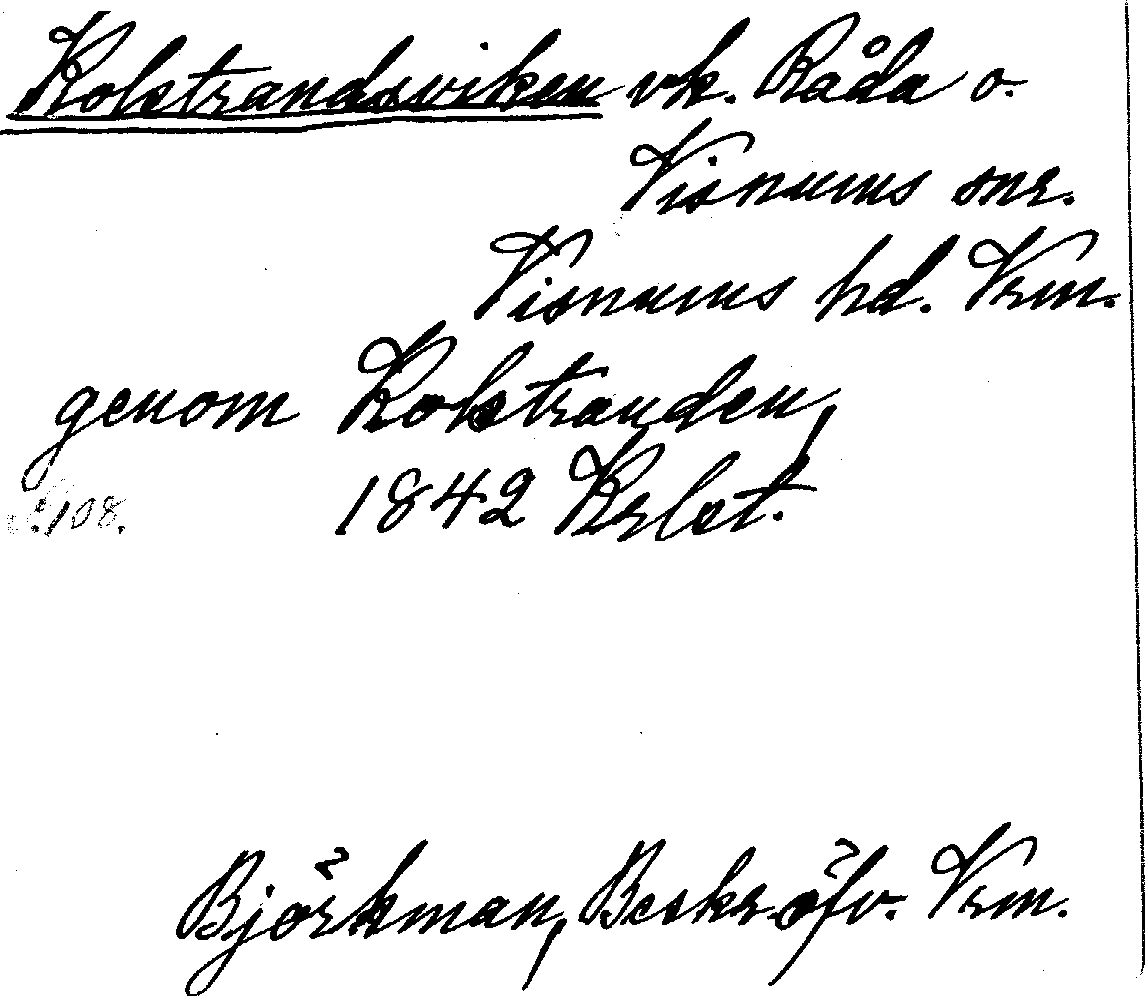 Kolstrandsviken vk. Råda o.
Visnums snr.
Visnums hd. Vrm.
genom Kolstranden,
1842 Krlst.
S. 108.
Björkman, Beskr. öfv. Vrm.